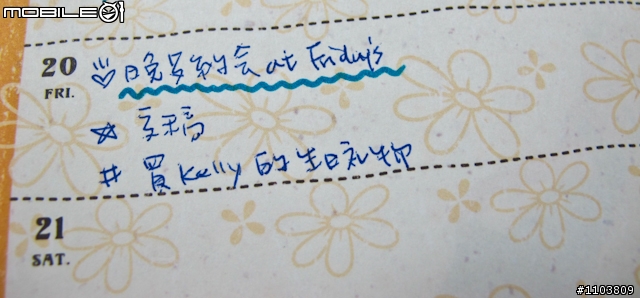 MOBILE01
20
FRI.
♡晚8約會at Friday's
☆交稿
# 買Kelly的生日礼物
21
SAT.
#1103809